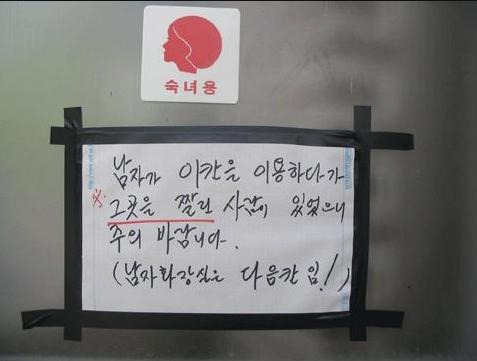 숙녀용
남자가 이칸을 이용하다가
※ 그곳을 짤린 사람이 있었으니
주의 바랍니다.
(남자화장실은 다음칸 임!)